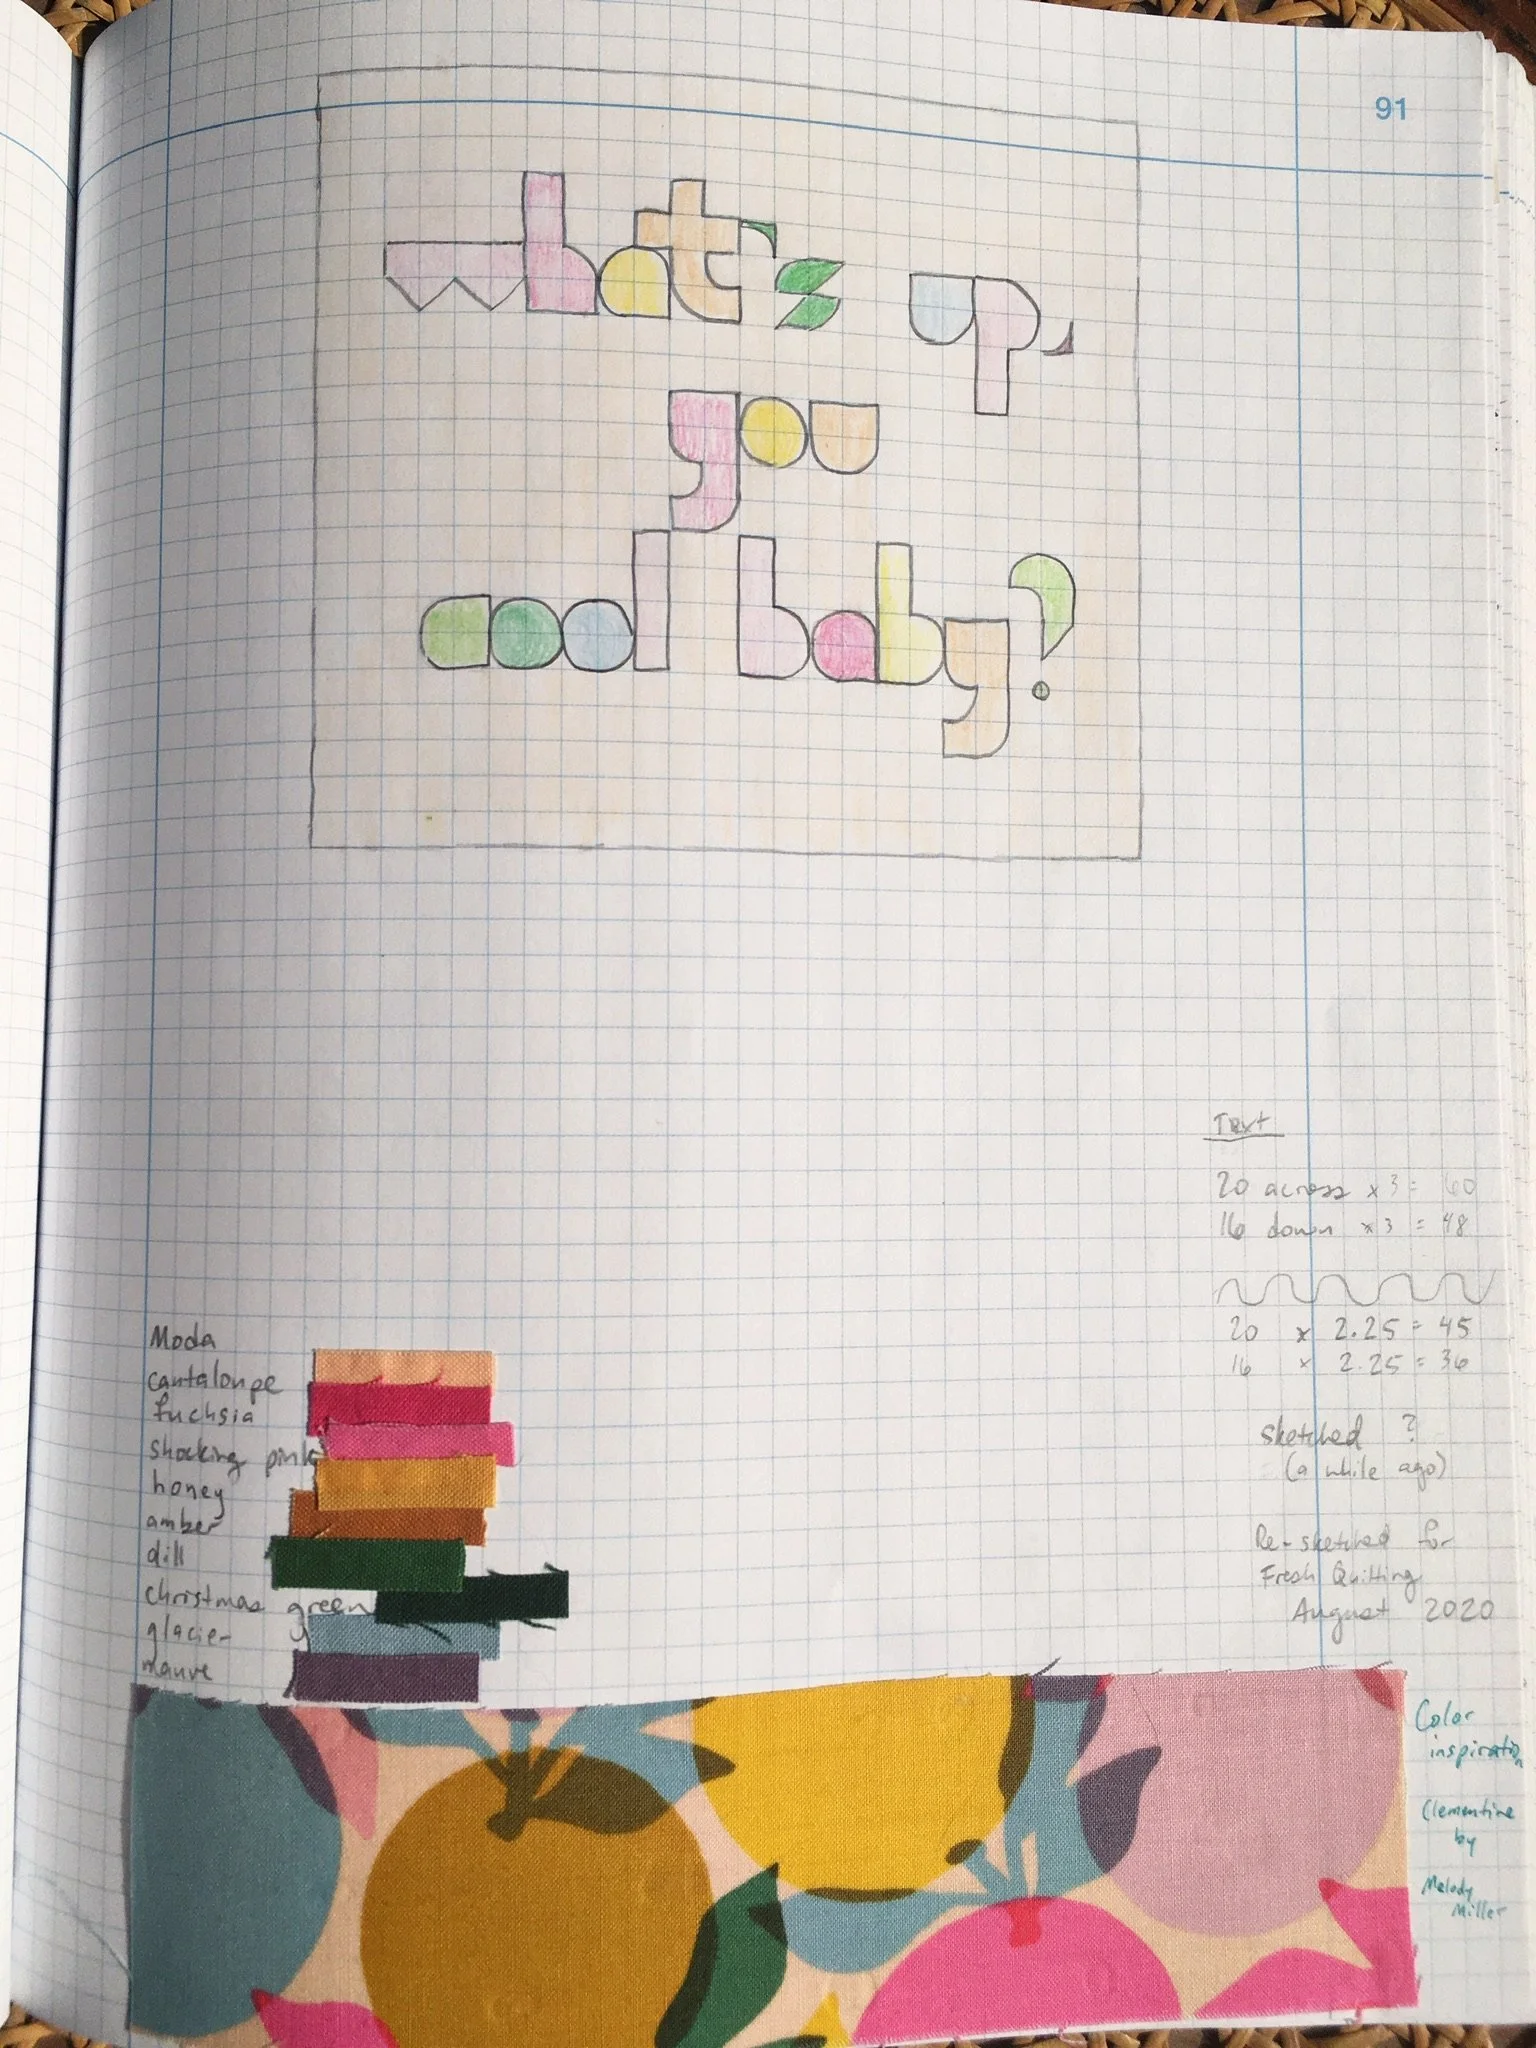 91
what's up,
you
cool baby?
Text
20 across x 3 = 60
16 down x 3 = 48
20 x 2.25 = 45
16 x 2.25 = 36
sketched ?
(a while ago)
Re-sketched for
Fresh Quilting
August 2020
Moda
cantaloupe
fuchsia
shocking pink
honey
amber
dill
christmas green
glacier
mauve
Color
inspiration
Clementine
by
Melody
Miller